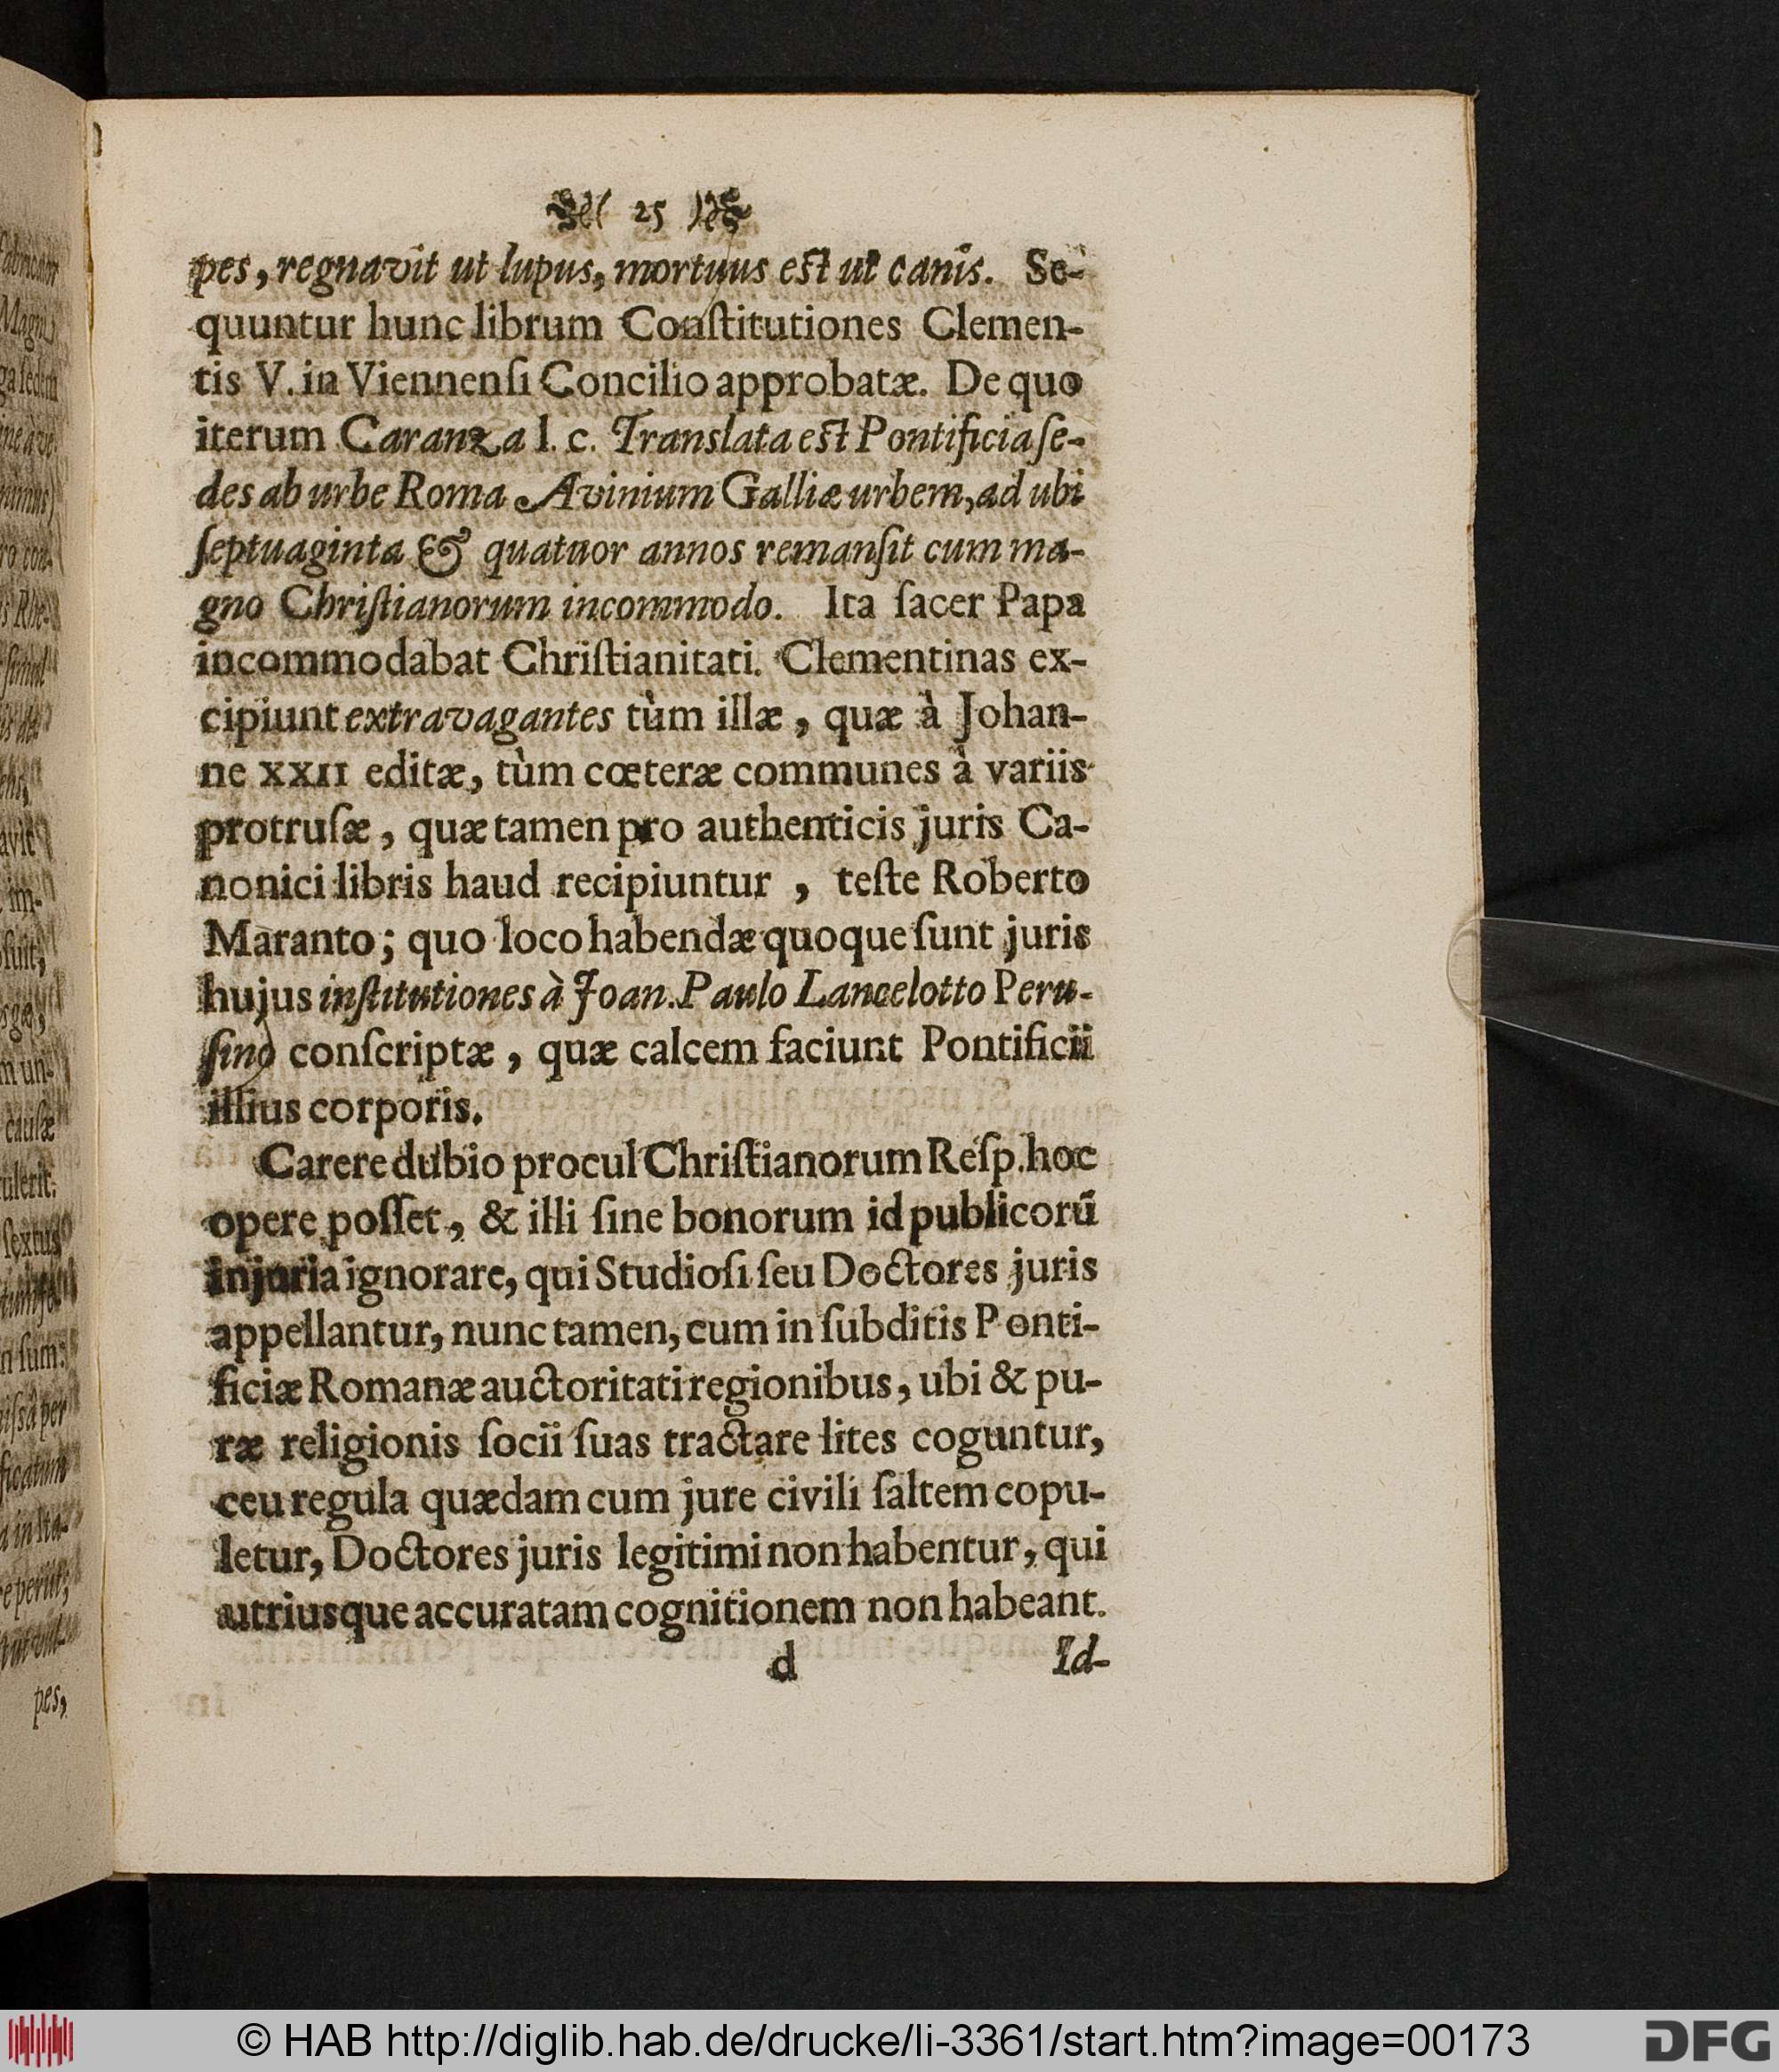 25
pes, regnavit ut lupus, mortuus est ut canis. Se-
quuntur hunc librum Conſtitutiones Clemen-
tis V. in Viennenſi Concilio approbatæ. De quo
iterum Caranza l. c. Translata est Pontificia ſe-
des ab urbe Roma Avinium Galliæ urbem, ad ubi
ſeptuaginta & quatuor annos remanſit cum ma-
gno Chriſtianorum incommodo. Ita ſacer Papa
incommodabat Chriſtianitati. Clementinas ex-
cipiunt extravagantes tùm illæ, quæ à Johan-
ne XXII editæ, tùm cœteræ communes à variis
protruſæ, quæ tamen pro authenticis juris Ca-
nonici libris haud recipiuntur, teſte Roberto
Maranto; quo loco habendæ quoque ſunt juris
hujus inſtitutiones à Joan. Paulo Lancelotto Peru-
ſino conſcriptæ, quæ calcem faciunt Pontificii
illius corporis.
Carere dubio procul Chriſtianorum Reſp. hoc
opere poſſet, & illi ſine bonorum id publicorū
injuria ignorare, qui Studioſi ſeu Doctores juris
appellantur, nunc tamen, cum in ſubditis Ponti-
ficiæ Romanæ auctoritati regionibus, ubi & pu-
ræ religionis ſocii ſuas tractare lites coguntur,
ceu regula quædam cum jure civili ſaltem copu-
letur, Doctores juris legitimi non habentur, qui
utriusque accuratam cognitionem non habeant.
d Id-
pes,
© HAB http://diglib.hab.de/drucke/li-3361/start.htm?image=00173
DFG